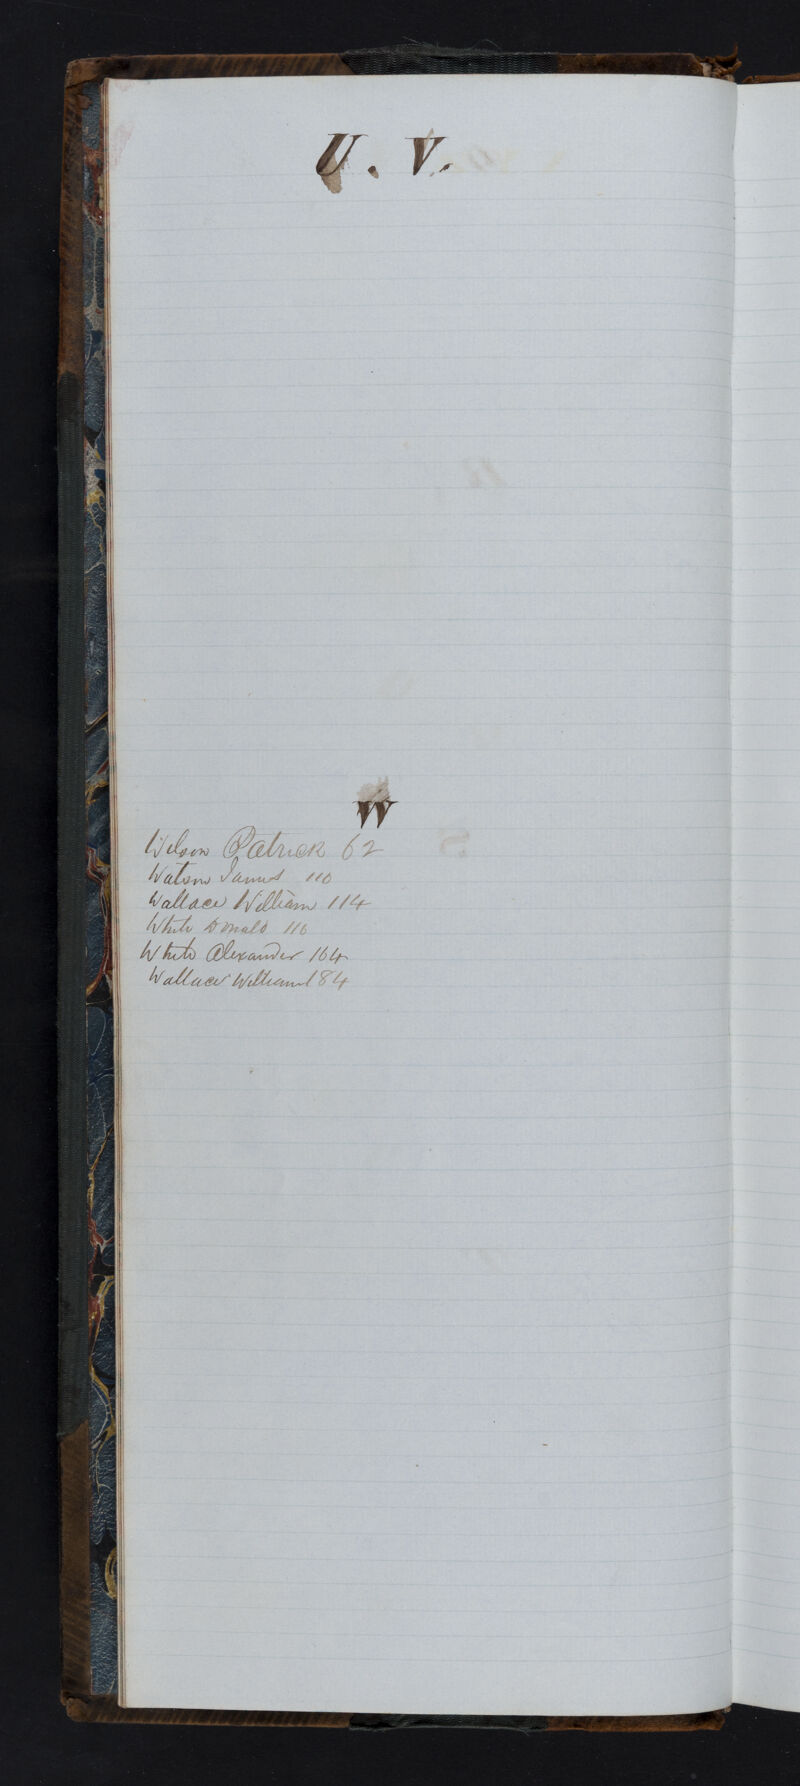 U. V.
W
Wilson Patrick 62
Watson James 110
Wallace William 114
White Donald 116
White Alexander 164
Wallace William 184